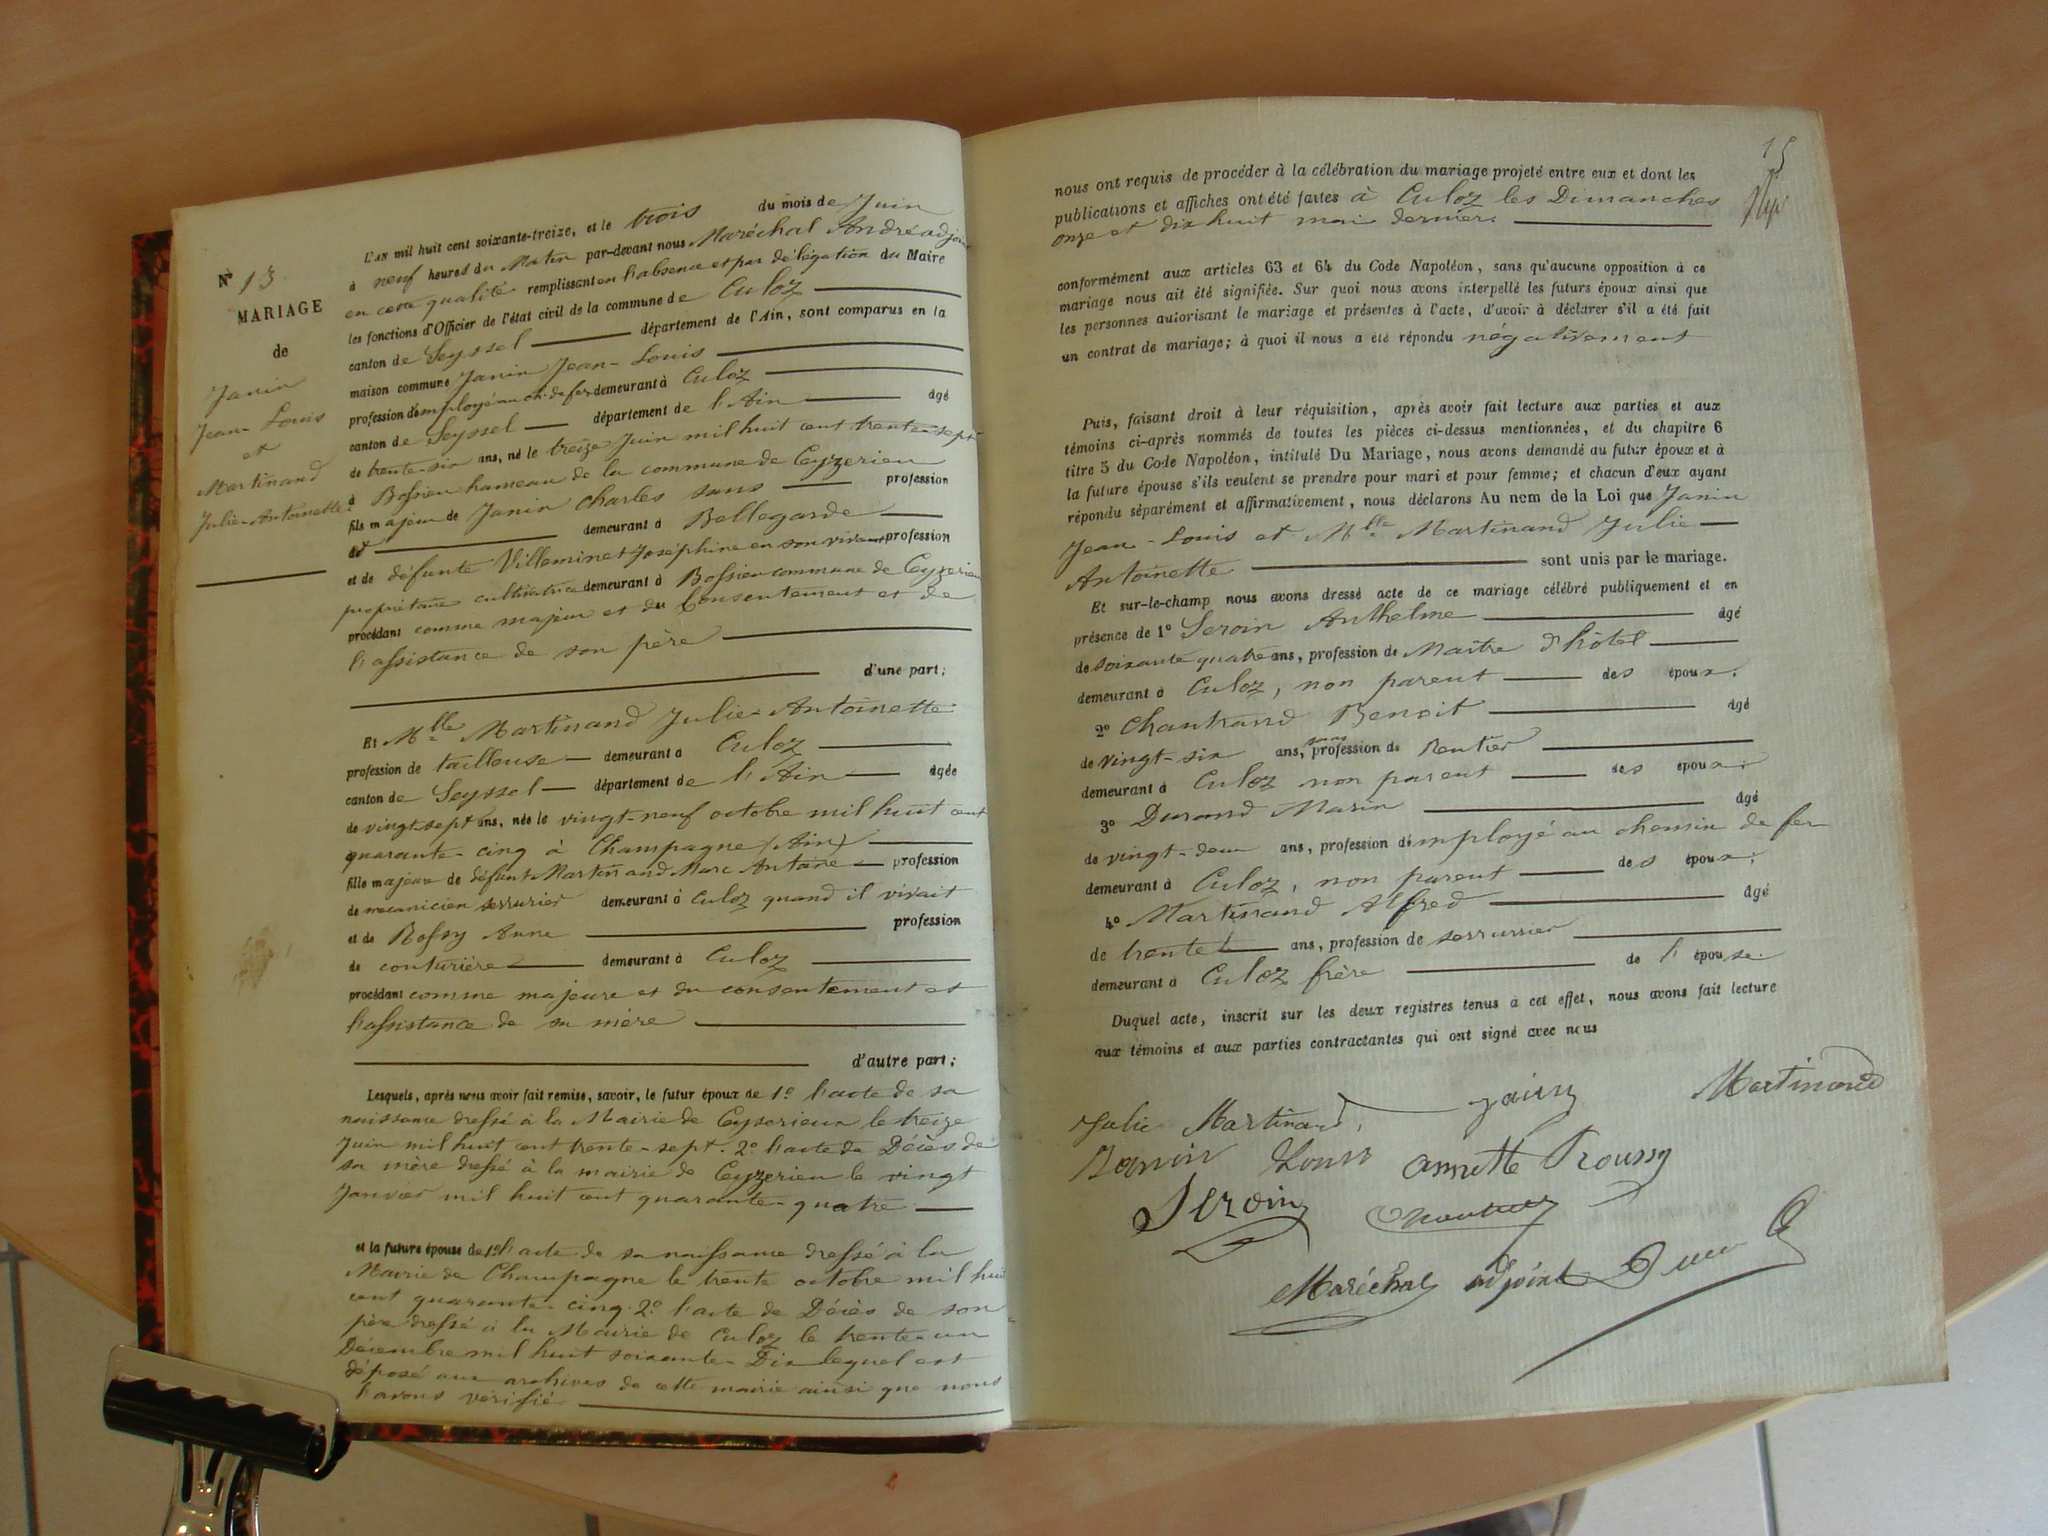 N° 13
MARIAGE
de
Janin
Jean-Louis
et
Martinand
Julie-Antoinette
L'an mil huit cent soixante-treize, et le trois du mois de Juin
à neuf heures du Matin par-devant nous Maréchal André adjoint
en cette qualité remplissant en l'absence et par délégation du Maire
les fonctions d'Officier de l'état civil de la commune de Culoz
canton de Seyssel département de l'Ain, sont comparus en la
maison commune Janin Jean-Louis
profession d'employé au ch. de fer demeurant à Culoz
canton de Seyssel département de l'Ain âgé
de trente-six ans, né le treize Juin mil huit cent trente-sept
à Bossieu hameau de la commune de Ceyzerieu
fils majeur de Janin Charles sans profession
demeurant à Bellegarde
et de défunte Villeminet Joséphine en son vivant profession
propriétaire cultivatrice demeurant à Bossieu commune de Ceyzerieu
procédant comme majeur et du Consentement et de
l'assistance de son père
d'une part;
Et Mlle Martinand Julie-Antoinette
profession de tailleuse demeurant à Culoz
canton de Seyssel département de l'Ain âgée
de vingt-sept ans, née le vingt-neuf octobre mil huit cent
quarante-cinq à Champagne (Ain)
fille majeure de défunt Martinand Marc Antoine profession
de mécanicien serrurier demeurant à Culoz quand il vivait
et de Rossy Anne profession
de couturière demeurant à Culoz
procédant comme majeure et du consentement et
l'assistance de sa mère
d'autre part;
Lesquels, après nous avoir fait remise, savoir, le futur époux de 1° l'acte de sa
naissance dressé à la Mairie de Ceyzerieu le treize
Juin mil huit cent trente-sept. 2° l'acte de Décès de
sa mère dressé à la mairie de Ceyzerieu le vingt
Janvier mil huit cent quarante-quatre
et la future épouse de 1° l'acte de sa naissance dressé à la
Mairie de Champagne le trente octobre mil huit
cent quarante-cinq. 2° l'acte de Décès de son
père dressé à la Mairie de Culoz le trente-un
Décembre mil huit soixante-Dix lequel est
déposé aux archives de cette mairie ainsi que nous
l'avons vérifié
15
nous ont requis de procéder à la célébration du mariage projeté entre eux et dont les
publications et affiches ont été faites à Culoz les Dimanches
onze et dix huit mai derniers
conformément aux articles 63 et 64 du Code Napoléon, sans qu'aucune opposition à ce
mariage nous ait été signifiée. Sur quoi nous avons interpellé les futurs époux ainsi que
les personnes autorisant le mariage et présentes à l'acte, d'avoir à déclarer s'il a été fait
un contrat de mariage; à quoi il nous a été répondu négativement
Puis, faisant droit à leur réquisition, après avoir fait lecture aux parties et aux
témoins ci-après nommés de toutes les pièces ci-dessus mentionnées, et du chapitre 6
titre 5 du Code Napoléon, intitulé Du Mariage, nous avons demandé au futur époux et à
la future épouse s'ils veulent se prendre pour mari et pour femme; et chacun d'eux ayant
répondu séparément et affirmativement, nous déclarons Au nom de la Loi que Janin
Jean-Louis et Mlle Martinand Julie
Antoinette sont unis par le mariage.
Et sur-le-champ nous avons dressé acte de ce mariage célébré publiquement et en
présence de 1° Seroin Anthelme âgé
de soixante quatre ans, profession de Maître d'hôtel
demeurant à Culoz, non parent des époux.
2° Chautrand Benoit âgé
de vingt-six ans, sans profession de Rentier
demeurant à Culoz non parent des époux.
3° Durand Marin âgé
de vingt-deux ans, profession d'employé au chemin de fer
demeurant à Culoz, non parent des époux.
4° Martinand Alfred âgé
de trente ans, profession de serrurier
demeurant à Culoz frère de l'épouse.
Duquel acte, inscrit sur les deux registres tenus à cet effet, nous avons fait lecture
aux témoins et aux parties contractantes qui ont signé avec nous
Julie Martinand, Janin Martinand
Janin Louis Annette Roussy
Seroin
Maréchal adjoint